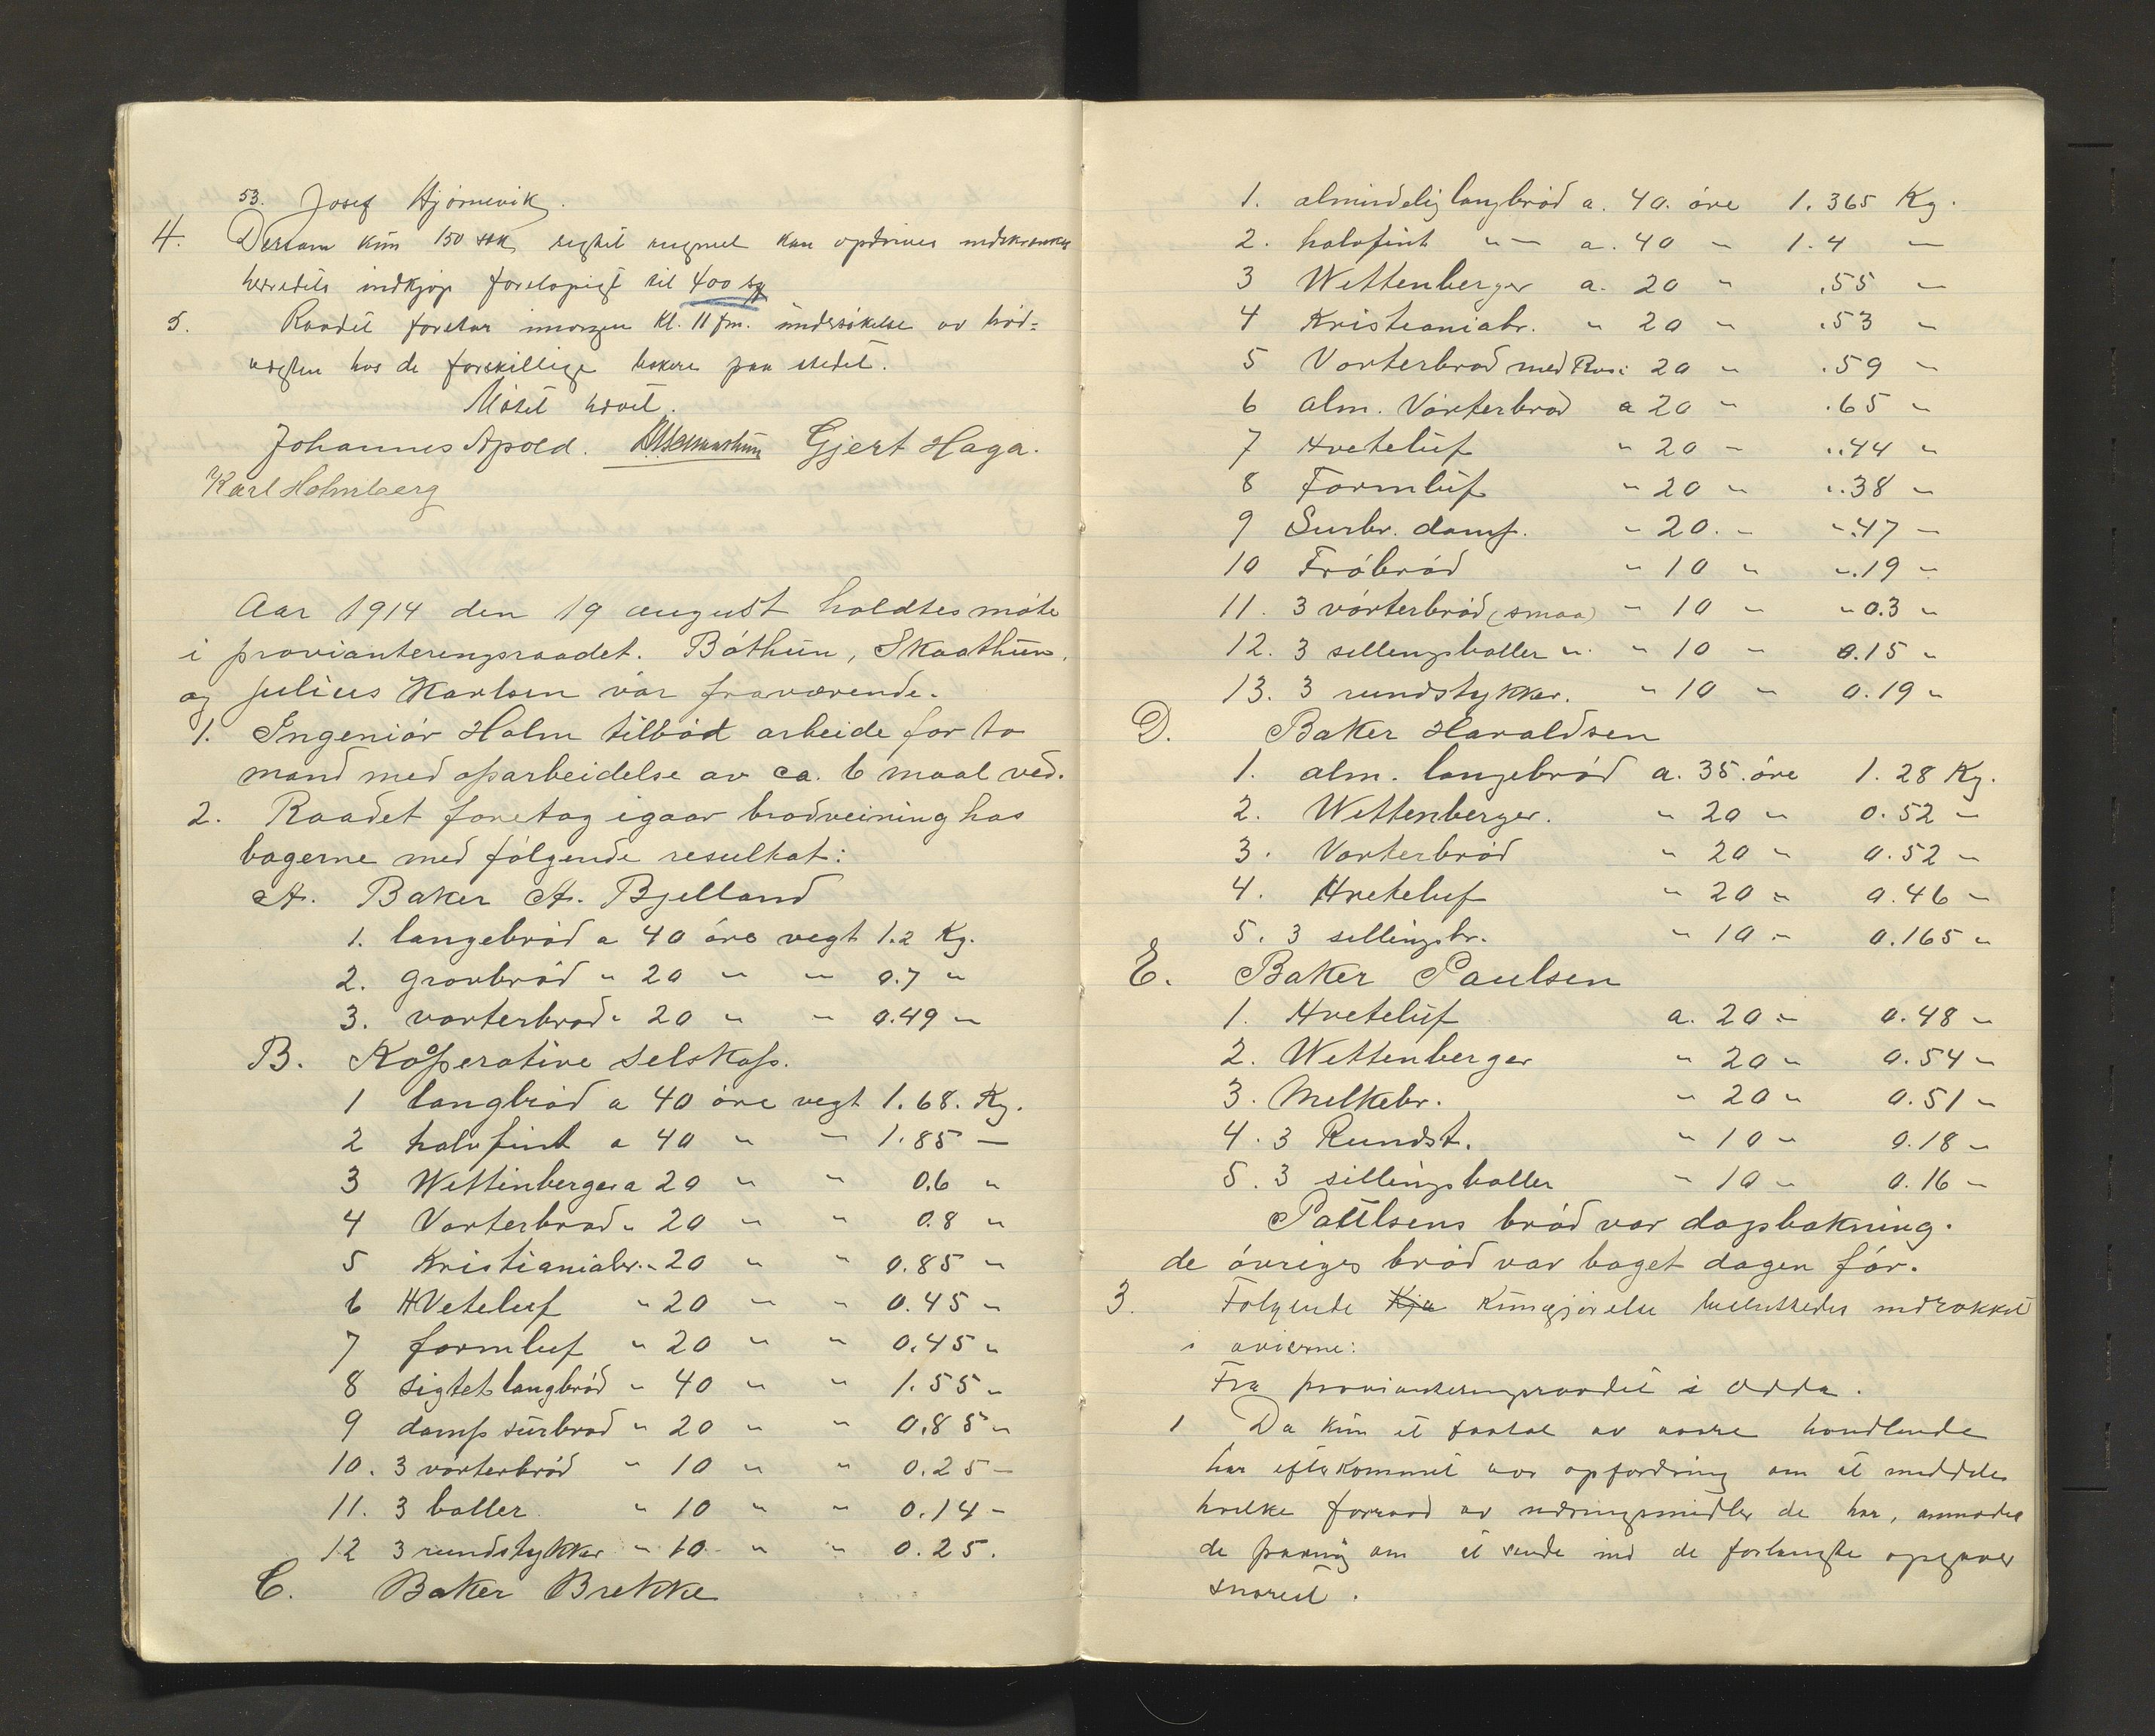 53. Josef Hjørnevik.
4. Dersom kun 150 sæk sigtet rugmel kan opdrives indskrænkes
herredets indkjøp foreløpigt til 400 sæk
5. Raadet foretar imorgen kl. 11 fm. undersøkelse av brød=
vegten hos de forskillige bakere paa stedet.
Møtet hævet.
Johannes Apold. Gjert Haga.
Karl Holmberg
Aar 1914 den 19 august holdtes møte
i provianteringsraadet. Bøthun, Skaathun,
og Julius Karlsen var fraværende.
1. Ingeniør Holm tilbød arbeide for to
mand med oparbeidelse av ca. 6 maal ved.
2. Raadet foretog igaar brødveining hos
bagerne med følgende resultat:
A. Baker A. Bjelland
1. langebrød a 40 øre vegt 1.2 Kg.
2. grovbrød " 20 " " 0.7 "
3. vørterbrød " 20 " " 0.49 "
B. Kooperative selskap.
1 langbrød a 40 øre vegt 1.68. Kg.
2 halvfint a 40 " " 1.85 —
3 Wettinberger a 20 " " 0.6 "
4 Vørterbrød " 20 " " 0.8 "
5 Kristianiabr. " 20 " " 0.85 "
6 HVeteluf " 20 " " 0.45 "
7 formluf " 20 " " 0.45 "
8 sigtet langbrød " 40 " " 1.55 "
9 damp surbrød " 20 " " 0.85 "
10. 3 vørterbrød " 10 " " 0.25 —
11. 3 boller " 10 " " 0.14 -
12 3 rundstykker " 10 " " 0.25.
C. Baker Brekke
1. almindelig langbrød a. 40. øre 1.365 Kg.
2. halvfint " — a. 40 " 1.4 —
3 Wettenberger a. 20 " .55 —
4 Kristianiabr. " 20 " .53 "
5 Vørterbrød med Rosi 20 " .59 "
6 alm. Vørterbrød a 20 " .65 "
7 Hveteluf " 20 " ".44 "
8 Formluf " 20 " ".38 "
9 Surbr. damp. " 20. " ".47 —
10 Frøbrød " 10 " ".19 "
11. 3 vørterbrød (smaa) " 10 " " 0.3 "
12. 3 sellingsboller " " 10 " 0.15 "
13. 3 rundstykker. " 10 " 0.19 "
D. Baker Haraldsen
1. alm. langebrød a. 35. øre 1.28 Kg.
2. Wettenberger. " 20 " 0.52 "
3. Vørterbrød " 20 " 0.52 "
4. Hveteluf " 20 " 0.46 "
5. 3 sellingsbr. " 10 " 0.165 "
E. Baker Paulsen
1. Hveteluf a. 20 " 0.48 "
2. Wettenberger " 20 " 0.54 "
3. Melkebr. " 20 " 0.51 "
4. 3 Rundst. " 10 " 0.18 "
5. 3 sillingsboller " 10 " 0.16 "
Paulsens brød var dagsbakning.
de øvriges brød var baget dagen før.
3. Følgende Kja Kungjørelse besluttedes indrøkket
i aviserne:
Fra provianteringsraadet i Odda.
1 Da kun et faatal av vore handlende
har efterkommet vor opfordring om at meddele
hvilke forraad av næringsmidler de har, anmodes
de paany om at sende ind de forlangte opgaver
snarest.